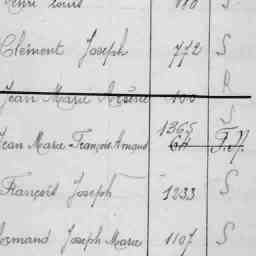 Henri Louis 110 S
Clément Joseph 772 S
Jean Marie Arsène 100 R
S
1365
Jean Marie François Armand 64 F.N.
François Joseph 1233 S
Armand Joseph Marie 1107 S